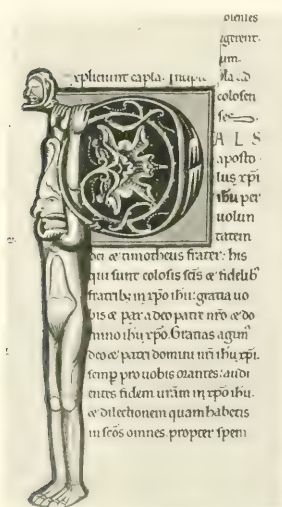 pientes
egerent.
sum.
Expliciunt capla. Incipit
ad
colosen
ses
A L S
aposto
lus xpi
ihu per
volun
tatem
dei & timotheus frater: his
qui sunt colosis scis & fidelib
fratrib; in xpo ihu: gratia uo
bis & pax a deo patre nro & do
mino ihu xpo. Gratias agim
deo & patri domini nri ihu xpi.
semp pro uobis orantes: audi
entes fidem uram in xpo ihu.
& dilectionem quam habetis
in scos omnes. propter spem